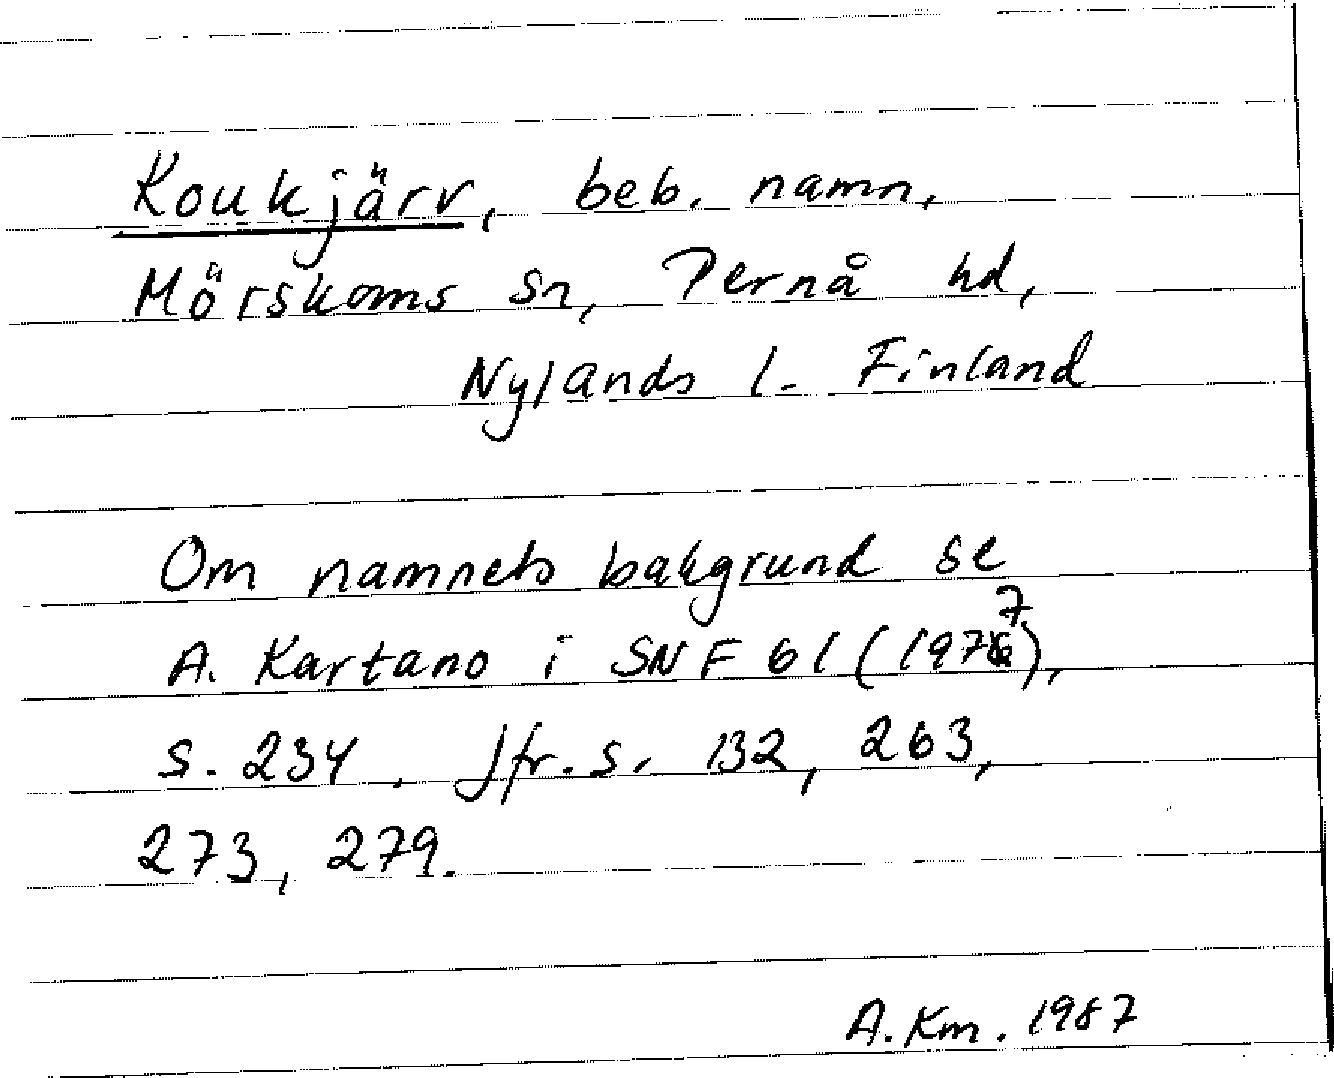 Koukjärv, beb. namn,
Mörskoms sn, Pernå hd,
Nylands l. Finland
Om namnets bakgrund se
A. Kartano i SNF 61 (1977),
s. 234. Jfr. s. 132, 263,
273, 279.
A. Km. 1987